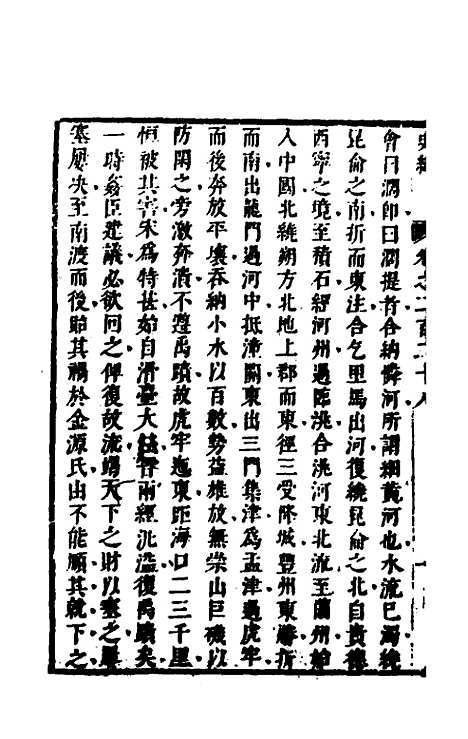 史緯　卷之二百二十八　一
會曰濶即曰濶提皆合納憐河所謂細黃河也水流已濁繞
昆侖之南折而東注合乞里馬出河復繞昆侖之北自貴德
西寧之境至積石經河州過臨洮合洮河東北流至蘭州始
入中國北繞朔方北地上郡而東徑三受降城豐州東勝折
而南出龍門過河中抵潼關東出三門集津為孟津過虎牢
而後奔放平壤吞納小水以百數勢益雄放無崇山巨磯以
防閑之旁激奔潰不遵禹蹟故虎牢迤東距海口二三千里
恒被其害宋為特甚始自滑臺大伾嘗兩經汎溢復禹蹟矣
一時姦臣建議必欲回之俾復故流竭天下之財以塞之屢
塞屢决至南渡而後貽其禍於金源氏由不能順其就下之